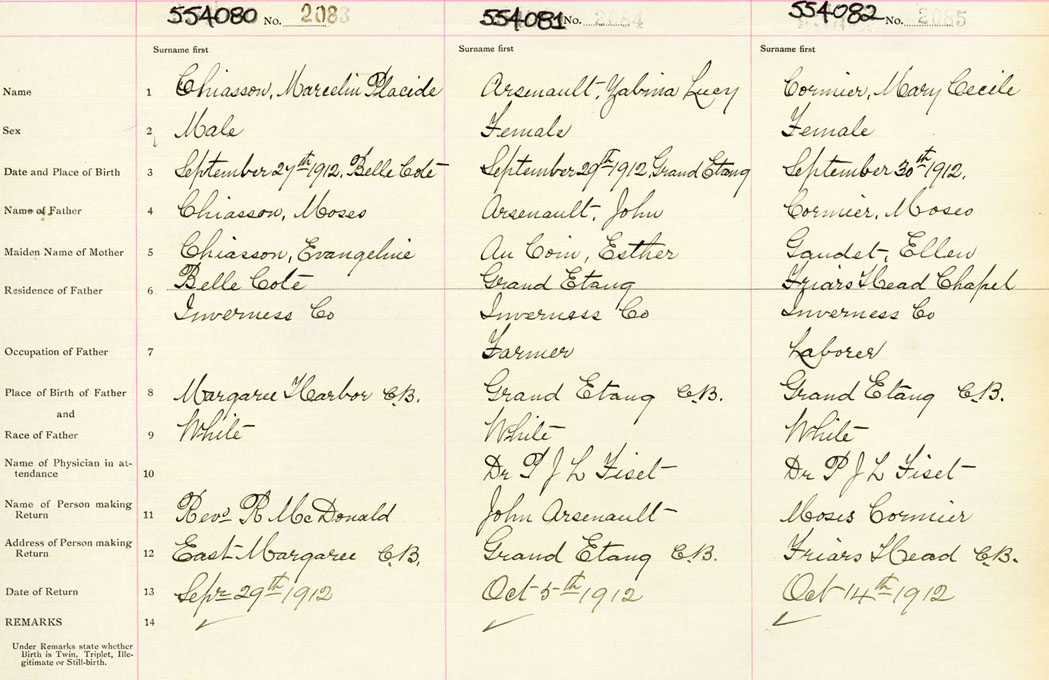 554080 No. 2083 554081 No. 2084 554082 No. 2085
Surname first Surname first Surname first
Name 1 Chiasson, Marcelin Placide Arsenault, Zabina Lucy Cormier, Mary Cecile
Sex 2 Male Female Female
Date and Place of Birth 3 September 27th 1912, Belle Cote September 29th 1912, Grand Etang September 30th 1912.
Name of Father 4 Chiasson, Moses Arsenault, John Cormier, Moses
Maiden Name of Mother 5 Chiasson, Evangeline Au Coin, Esther Gaudet, Ellen
Residence of Father 6 Belle Cote Grand Etang Friars Head Chapel
Inverness Co Inverness Co Inverness Co
Occupation of Father 7 Farmer Laborer
Place of Birth of Father 8 Margaree Harbor C.B. Grand Etang C.B. Grand Etang C.B.
and
Race of Father 9 White White White
Name of Physician in at-
tendance 10 Dr P J L Fiset Dr P J L Fiset
Name of Person making
Return 11 Revd R McDonald John Arsenault Moses Cormier
Address of Person making
Return 12 East Margaree C.B. Grand Etang C.B. Friars Head C.B.
Date of Return 13 Sept 29th 1912 Oct 5th 1912 Oct 14th 1912
REMARKS 14
Under Remarks state whether
Birth is Twin, Triplet, Ille-
gitimate or Still-birth.